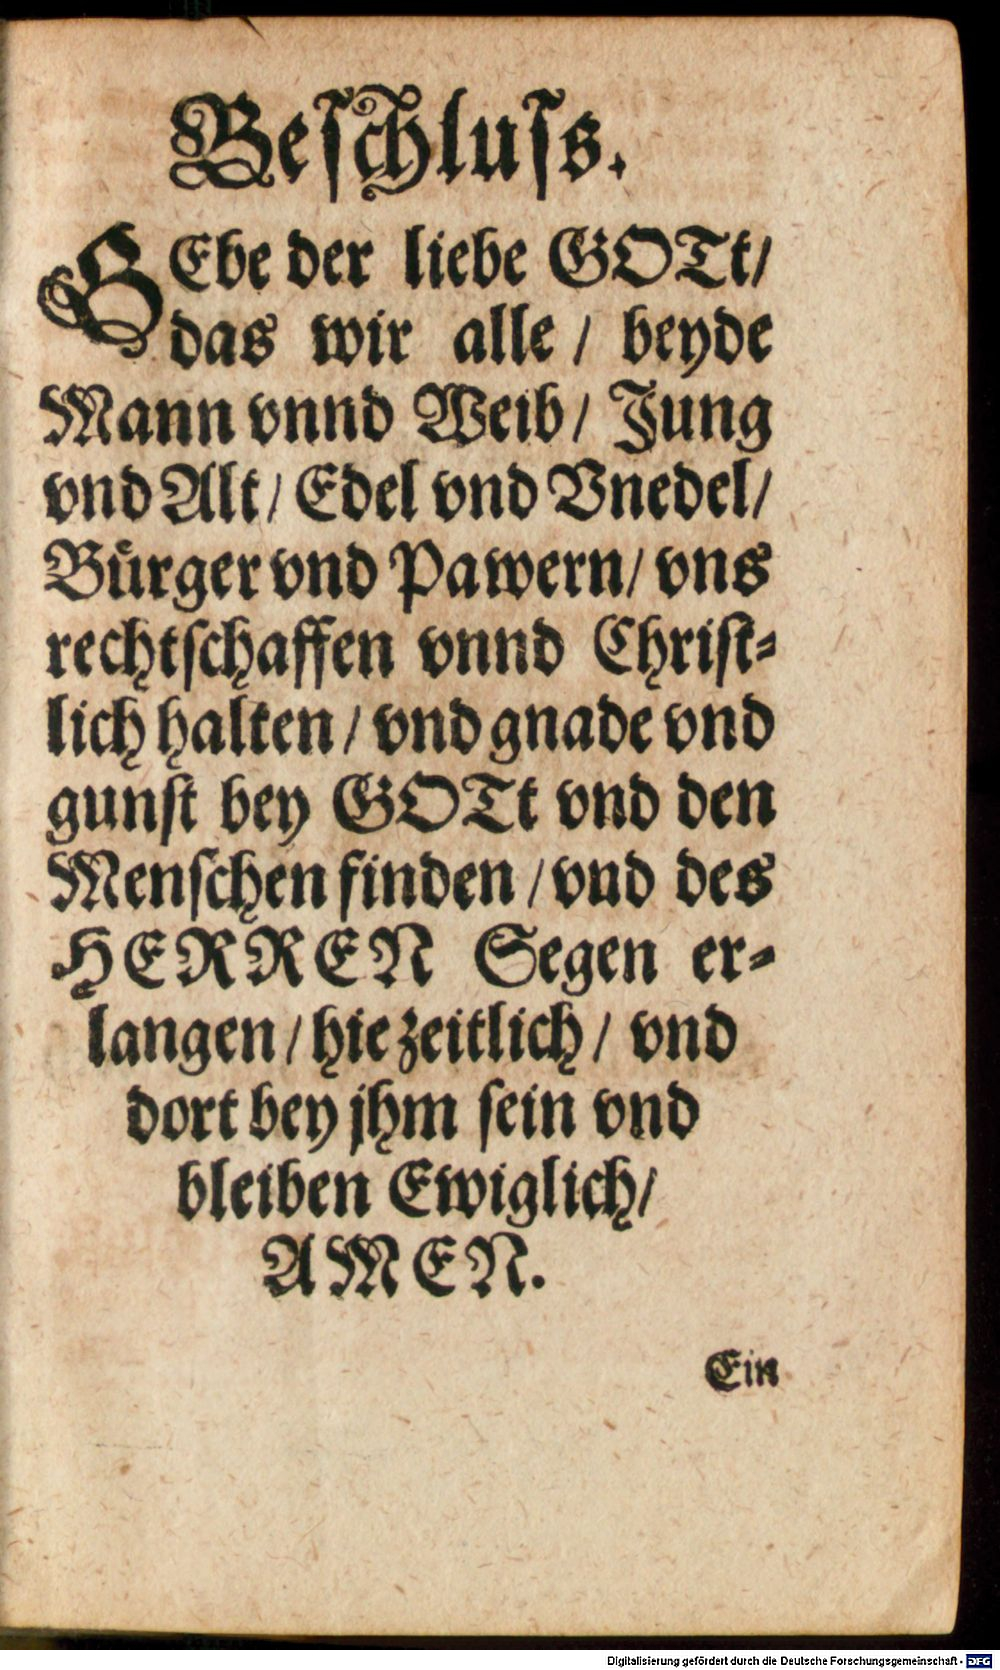 Beſchluſs.
GEbe der liebe GOTt/
das wir alle / beyde
Mann vnnd Weib/ Jung
vnd Alt/ Edel vnd Vnedel/
Bürger vnd Pawern/ vns
rechtſchaffen vnnd Chriſt-
lich halten / vnd gnade vnd
gunſt bey GOTt vnd den
Menſchen finden / vnd des
HERREN Segen er-
langen / hie zeitlich / vnd
dort bey jhm ſein vnd
bleiben Ewiglich/
AMEN.
Ein
Digitalisierung gefördert durch die Deutsche Forschungsgemeinschaft - DFG